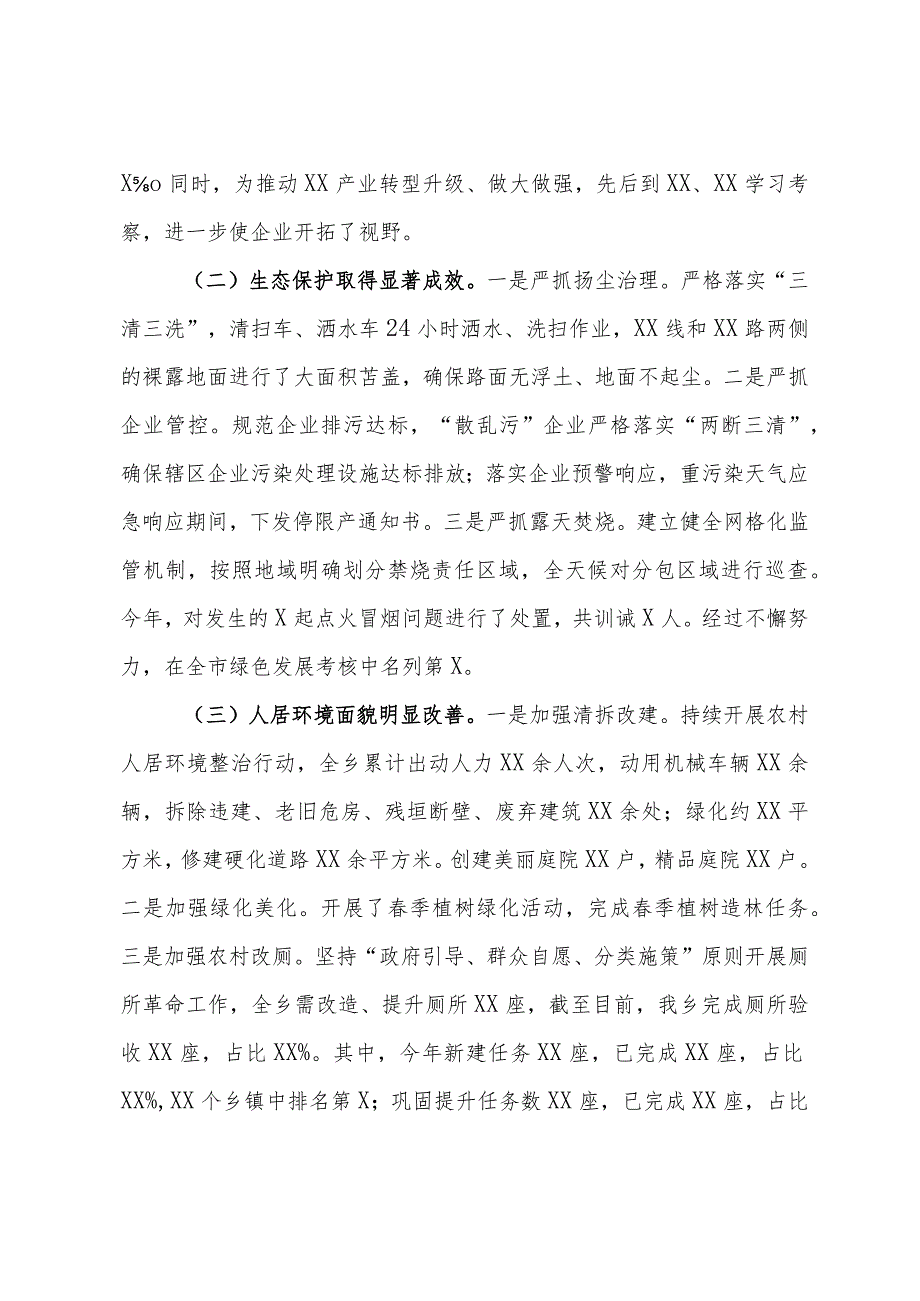 X⅝o 同时，为推动 XX 产业转型升级、做大做强，先后到 XX、XX 学习考
察，进一步使企业开拓了视野。
（二）生态保护取得显著成效。一是严抓扬尘治理。严格落实“三
清三洗”，清扫车、洒水车 24 小时洒水、洗扫作业，XX 线和 XX 路两侧
的裸露地面进行了大面积苫盖，确保路面无浮土、地面不起尘。二是严抓
企业管控。规范企业排污达标，“散乱污”企业严格落实“两断三清”，
确保辖区企业污染处理设施达标排放；落实企业预警响应，重污染天气应
急响应期间，下发停限产通知书。三是严抓露天焚烧。建立健全网格化监
管机制，按照地域明确划分禁烧责任区域，全天候对分包区域进行巡查。
今年，对发生的 X 起点火冒烟问题进行了处置，共训诫 X 人。经过不懈努
力，在全市绿色发展考核中名列第 X。
（三）人居环境面貌明显改善。一是加强清拆改建。持续开展农村
人居环境整治行动，全乡累计出动人力 XX 余人次，动用机械车辆 XX 余
辆，拆除违建、老旧危房、残垣断壁、废弃建筑 XX 余处；绿化约 XX 平
方米，修建硬化道路 XX 余平方米。创建美丽庭院 XX 户，精品庭院 XX 户。
二是加强绿化美化。开展了春季植树绿化活动，完成春季植树造林任务。
三是加强农村改厕。坚持“政府引导、群众自愿、分类施策”原则开展厕
所革命工作，全乡需改造、提升厕所 XX 座，截至目前，我乡完成厕所验
收 XX 座，占比 XX%。其中，今年新建任务 XX 座，已完成 XX 座，占比
XX%,XX 个乡镇中排名第 X；巩固提升任务数 XX 座，已完成 XX 座，占比